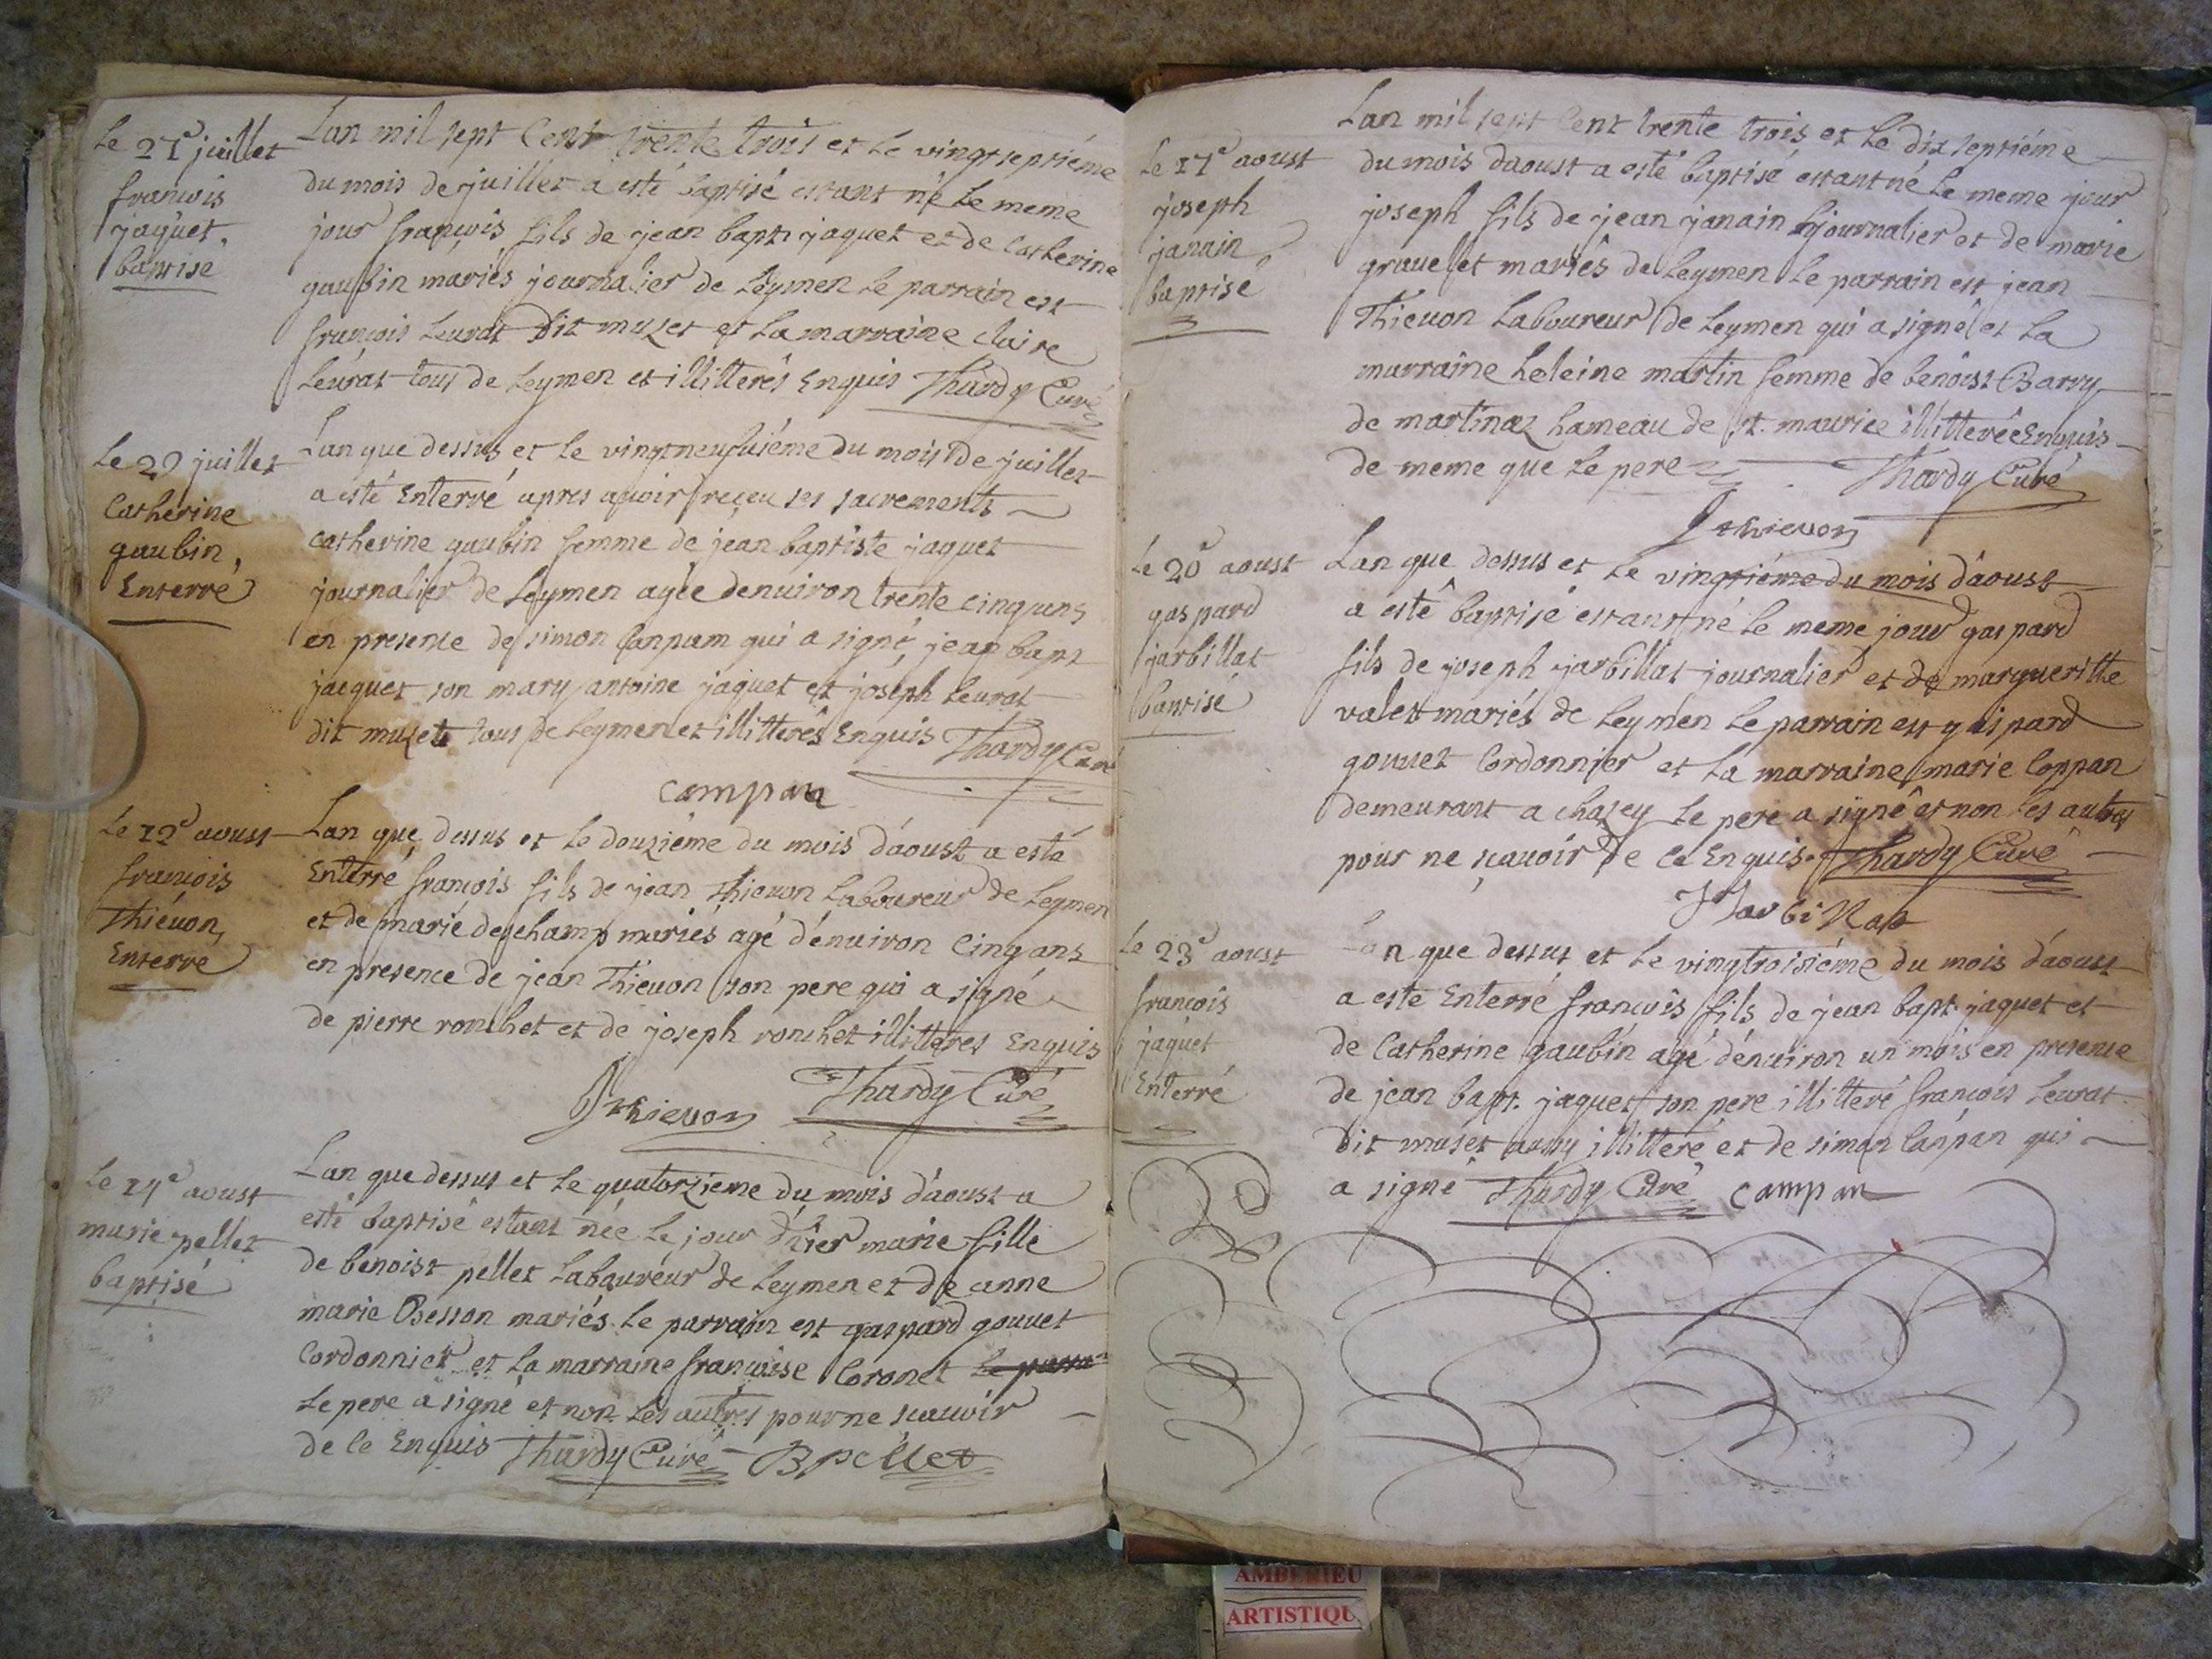 Le 27e juillet
francois
jaquet
baptisé
Lan mil sept Cent trente trois et Le vingtseptiéme
du mois de juillet a esté baptisé estant né Le meme
jour françois fils de jean bapt jaquet et de Catherine
gaubin mariés journalier de Leymen Le parrain est
françois Leurat Dit muzet et La marraine Claire
Leurat tous de Leymen et illitterés Enquis Thardy Curé
Le 29 juillet
Catherine
gaubin,
Enterré
Lan que dessus et Le vingtneufuiéme du mois de juillet
a esté Enterré apres avoir reçeu ses sacrements
catherine gaubin femme de jean baptiste jaquet
journalier de Leymen agée denuiron trente cinq ans
en presence de simon Canpam qui a signé, jean bapt
jacquet son mary antoine jaquet et joseph Leurat
dit muzet tous de Leymen et illitterés Enquis Thardy Curé
campan
Le 12e aoust
francois
Thiéuon,
Enterre
Lan que dessus et Le douziéme du mois d'aoust a esté
Enterré françois fils de jean Thieuon Laboureur de Leymen
et de marie deschamp mariés agé d'énuiron Cinq ans
en presence de jean Thieuon son pere qui a signé
de pierre ronchet et de joseph ronchet illitteres Enquis
Jthieuon Thardy Curé
Le 14e aoust
marie pellet
baptisé
Lan que dessus et Le quatorzieme du mois d'aoust a
esté baptisé estant née Le jour d'hier marie fille
de benoist pellet Laboureur de Leymen et de anne
marie Besson mariés Le parrain est gaspard gouuet
Cordonnier et La marraine françoise Coronet Le parra
Le pere a signé et non Les autres pour ne scauoir
de Ce Enquis Thardy Curé BPellet
Le 17e aoust
joseph
janain
baptisé
Lan mil sept Cent trente trois et Le dix septiéme
du mois daoust a esté baptisé estant né Le meme jour
joseph fils de jean janain journalier et de marie
grauelet mariés de Leymen Le parrain est jean
Thieuon Laboureur de Leymen qui a signé et La
marraine heleine martin femme de benoist Barry
de martinaz hameau de st. maurice illitterée Enquis
de meme que Le pere Thardy Curé
Jthieuon
Le 20e aoust
gaspard
jarbillat
baptisé
Lan que dessus et Le vingtiéme du mois d'aoust
a esté baptisé estant né Le meme jour gaspard
fils de joseph jarbillat journalier et de margueritte
valett mariés de Leymen Le parrain est gaspard
gouuet Cordonnier et La marraine marie Coppan
demeurant a chazey Le pere a signé et non Les autres
pour ne sçauoir de Ce Enquis. Thardy Curé
J Jarbillat
Le 23e aoust
francois
jaquet
Enterré
Lan que dessus et Le vingtroisiéme du mois d'aoust
a esté Enterré françois fils de jean bapt. jaquet et
de Catherine gaubin agé d'énuiron un mois en presence
de jean bapt. jaquet son pere illitteré françois Leurat
Dit muset aussy illitteré et de simon Canpan qui
a signé Thardy Curé campan
AMBERIEU
ARTISTIQU